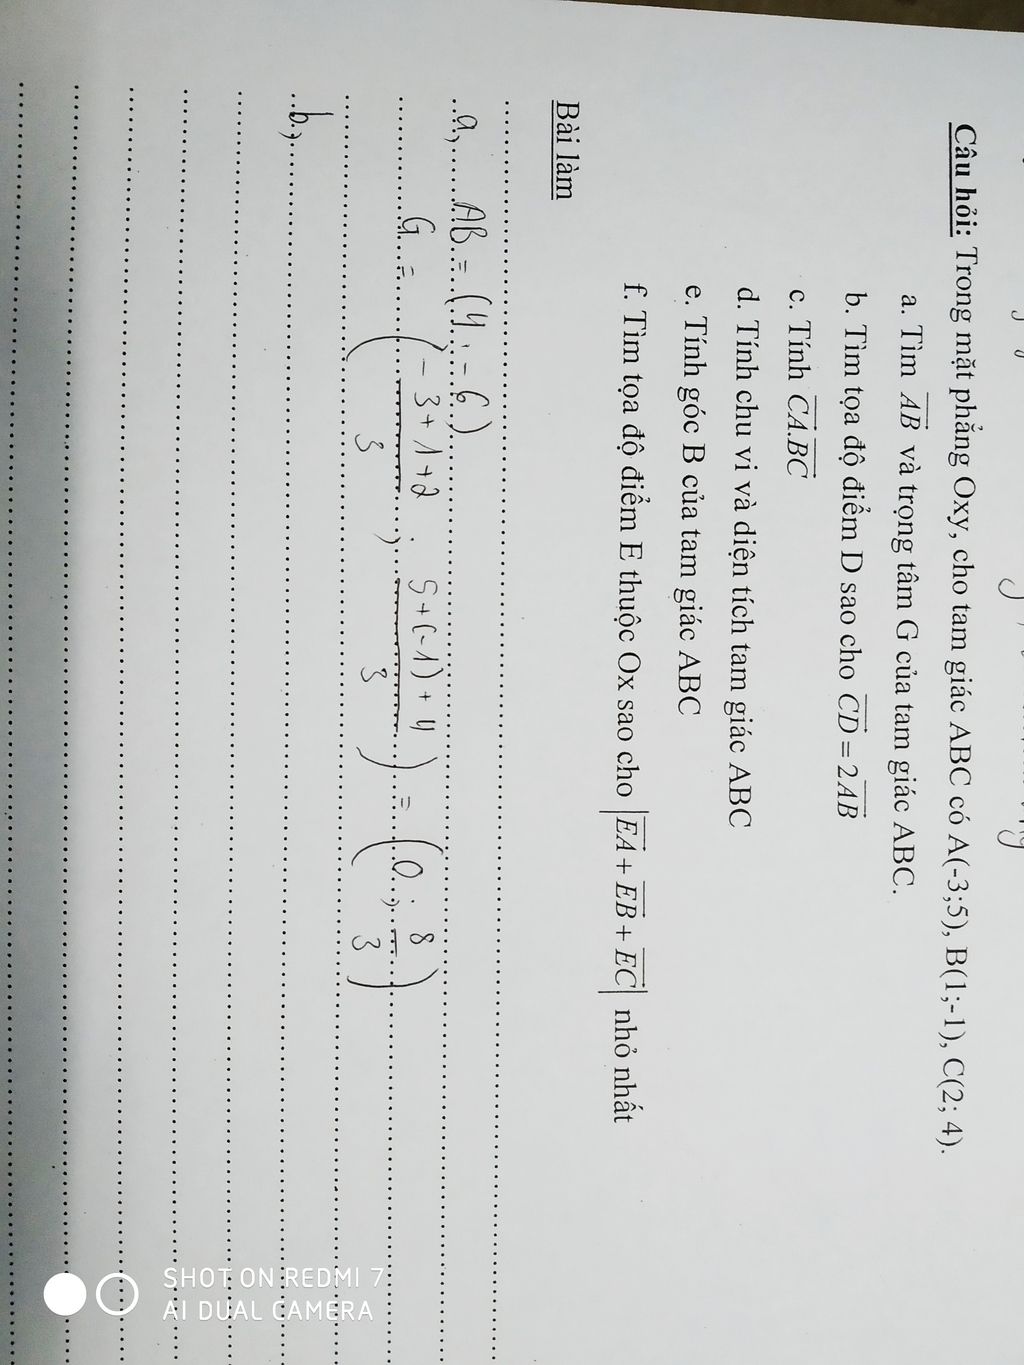 Câu hỏi: Trong mặt phẳng Oxy, cho tam giác ABC có A(-3;5), B(1;-1), C(2; 4).
a. Tìm AB và trọng tâm G của tam giác ABC.
b. Tìm tọa độ điểm D sao cho CD = 2AB
c. Tính CA.BC
d. Tính chu vi và diện tích tam giác ABC
e. Tính góc B của tam giác ABC
f. Tìm tọa độ điểm E thuộc Ox sao cho |EA + EB + EC| nhỏ nhất
Bài làm
a, AB = (4; -6)
G = (-3+1+2/3 ; 5+(-1)+4/3) = (0 ; 8/3)
b,
SHOT ON REDMI 7
AI DUAL CAMERA